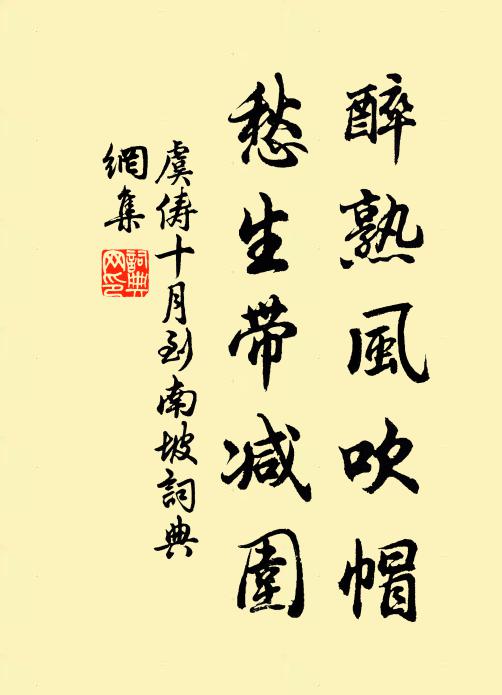 醉熟風吹帽
愁生带减圍
虞俦十月到南坡詞典
網集
詞典
网印